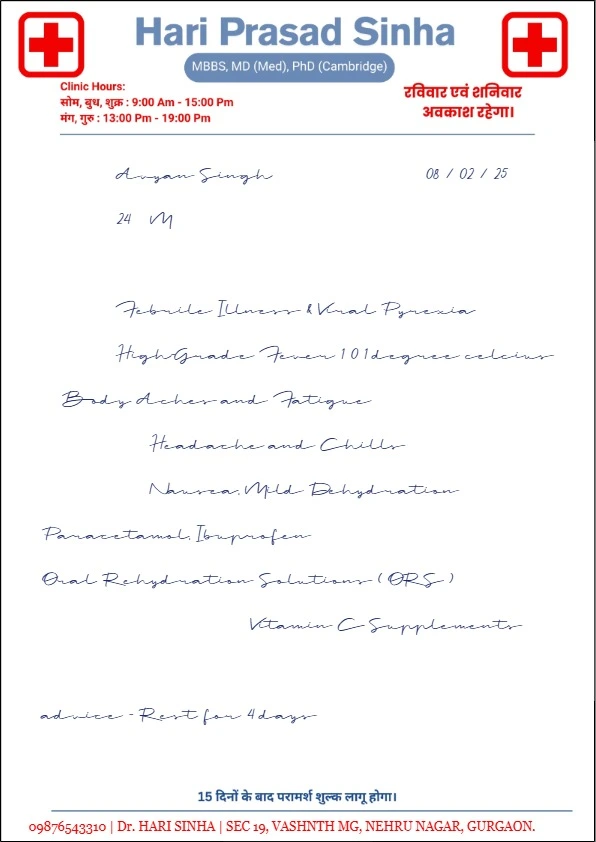 Hari Prasad Sinha
MBBS, MD (Med), PhD (Cambridge)
Clinic Hours:
सोम, बुध, शुक्र : 9:00 Am - 15:00 Pm
मंग, गुरु : 13:00 Pm - 19:00 Pm
रविवार एवं शनिवार
अवकाश रहेगा।
Aryan Singh 08 / 02 / 25
24 M
Febrile Illness & Viral Pyrexia
High Grade Fever 101 degree celcius
Body Aches and Fatigue
Headache and Chills
Nausea, Mild Dehydration
Paracetamol, Ibuprofen
Oral Rehydration Solutions (ORS)
Vitamin C Supplements
advice - Rest for 4 days
15 दिनों के बाद परामर्श शुल्क लागू होगा।
09876543310 | Dr. HARI SINHA | SEC 19, VASHNTH MG, NEHRU NAGAR, GURGAON.